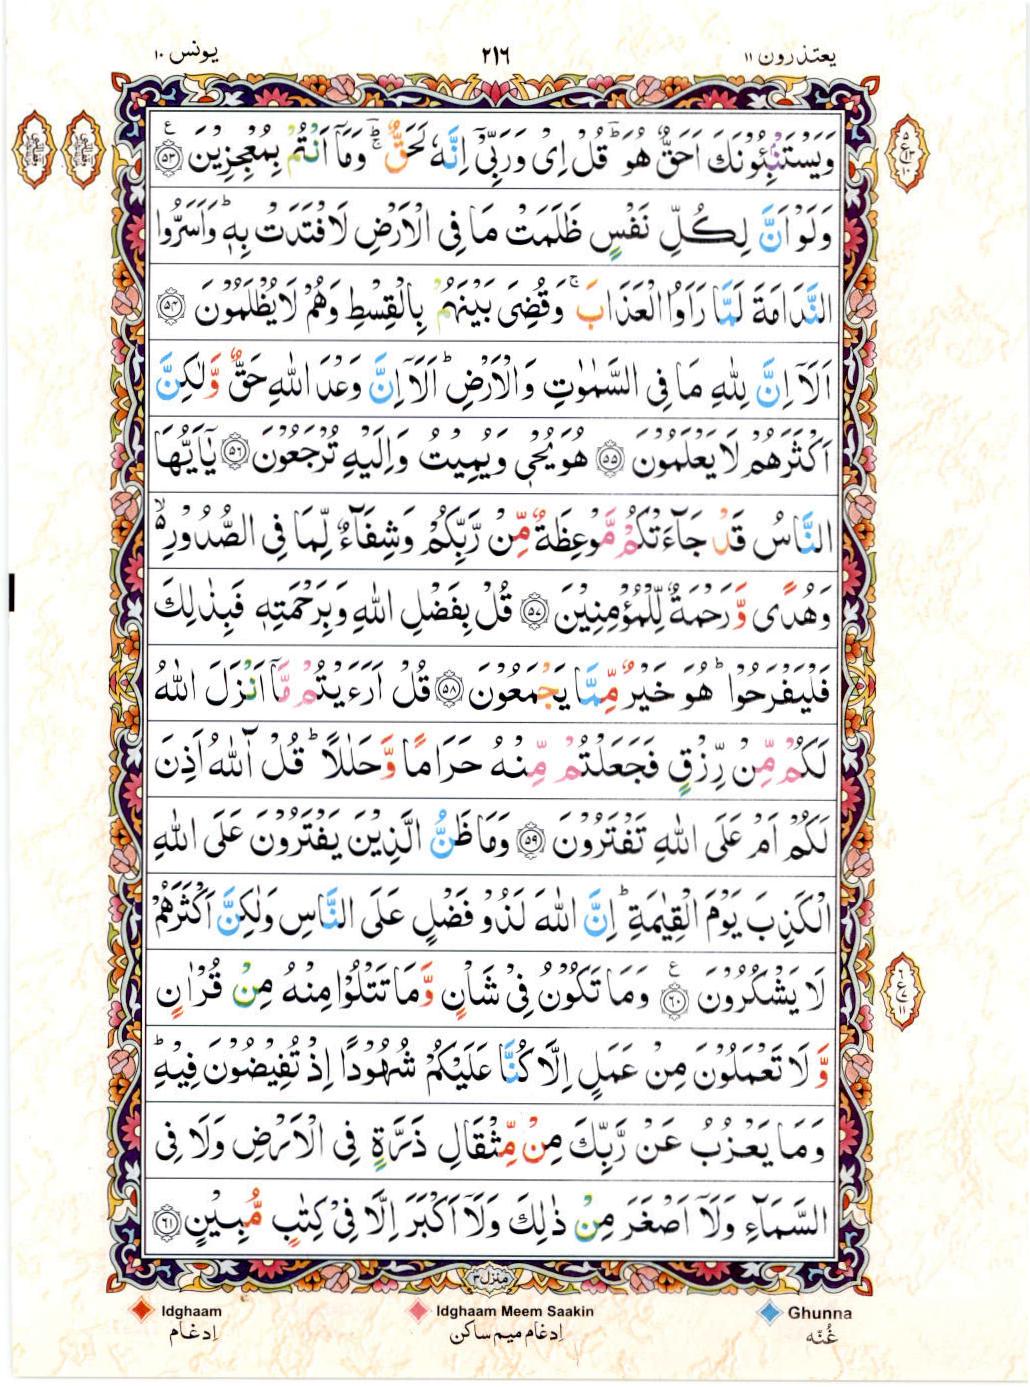 یعتذرون ۱۱
۲۱۶
یونس ۱۰
وَيَسْتَنْۢبِـُٔوْنَكَ اَحَقٌّ هُوَ ؕ قُلْ اِىْ وَرَبِّىْۤ اِنَّهٗ لَحَقٌّ ؕۚ وَمَاۤ اَنْتُمْ بِمُعْجِزِيْنَ ﴿۵۳﴾ ع
وَلَوْ اَنَّ لِكُلِّ نَفْسٍ ظَلَمَتْ مَا فِى الْاَرْضِ لَافْتَدَتْ بِهٖ ؕ وَاَسَرُّوا
النَّدَامَةَ لَمَّا رَاَوُا الْعَذَابَ ۚ وَقُضِىَ بَيْنَهُمْ بِالْقِسْطِ وَهُمْ لَا يُظْلَمُوْنَ ﴿۵۴﴾
اَلَاۤ اِنَّ لِلّٰهِ مَا فِى السَّمٰوٰتِ وَالْاَرْضِ ؕ اَلَاۤ اِنَّ وَعْدَ اللّٰهِ حَقٌّ وَّلٰـكِنَّ
اَكْثَرَهُمْ لَا يَعْلَمُوْنَ ﴿۵۵﴾ هُوَ يُحْىٖ وَيُمِيْتُ وَاِلَيْهِ تُرْجَعُوْنَ ﴿۵۶﴾ يٰۤاَيُّهَا
النَّاسُ قَدْ جَآءَتْكُمْ مَّوْعِظَةٌ مِّنْ رَّبِّكُمْ وَشِفَآءٌ لِّمَا فِى الصُّدُوْرِ ۙ
وَهُدًى وَّرَحْمَةٌ لِّلْمُؤْمِنِيْنَ ﴿۵۷﴾ قُلْ بِفَضْلِ اللّٰهِ وَبِرَحْمَتِهٖ فَبِذٰلِكَ
فَلْيَفْرَحُوْا ؕ هُوَ خَيْرٌ مِّمَّا يَجْمَعُوْنَ ﴿۵۸﴾ قُلْ اَرَءَيْتُمْ مَّاۤ اَنْزَلَ اللّٰهُ
لَكُمْ مِّنْ رِّزْقٍ فَجَعَلْتُمْ مِّنْهُ حَرَامًا وَّحَلٰلًا ؕ قُلْ آٰللّٰهُ اَذِنَ
لَكُمْ اَمْ عَلَى اللّٰهِ تَفْتَرُوْنَ ﴿۵۹﴾ وَمَا ظَنُّ الَّذِيْنَ يَفْتَرُوْنَ عَلَى اللّٰهِ
الْكَذِبَ يَوْمَ الْقِيٰمَةِ ؕ اِنَّ اللّٰهَ لَذُوْ فَضْلٍ عَلَى النَّاسِ وَلٰـكِنَّ اَكْثَرَهُمْ
لَا يَشْكُرُوْنَ ﴿۶۰﴾ ع وَمَا تَكُوْنُ فِىْ شَاْنٍ وَّمَا تَتْلُوْا مِنْهُ مِنْ قُرْاٰنٍ
وَّلَا تَعْمَلُوْنَ مِنْ عَمَلٍ اِلَّا كُنَّا عَلَيْكُمْ شُهُوْدًا اِذْ تُفِيْضُوْنَ فِيْهِ ؕ
وَمَا يَعْزُبُ عَنْ رَّبِّكَ مِنْ مِّثْقَالِ ذَرَّةٍ فِى الْاَرْضِ وَلَا فِى
السَّمَآءِ وَلَاۤ اَصْغَرَ مِنْ ذٰلِكَ وَلَاۤ اَكْبَرَ اِلَّا فِىْ كِتٰبٍ مُّبِيْنٍ ﴿۶۱﴾
۵
ع
۱۰
۶
ع
۷
۱۱
منزل ۳
Idghaam
اِدغام
Idghaam Meem Saakin
اِدغام میم ساکن
Ghunna
غُنّه